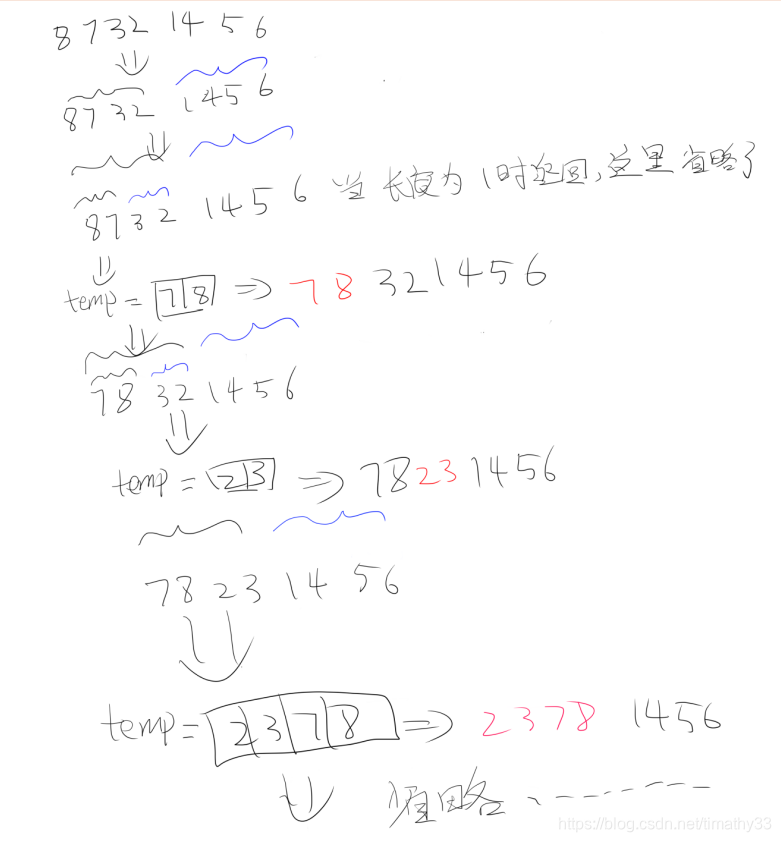 8732 1456
8732 1456
8732 1456 当长度为1时返回,这里省略了
temp = 7 8 => 78 321456
78 32 1456
temp = 2 3 => 78231456
78 23 14 56
temp = 2 3 7 8 => 2378 1456
省略、-------
https://blog.csdn.net/timathy33